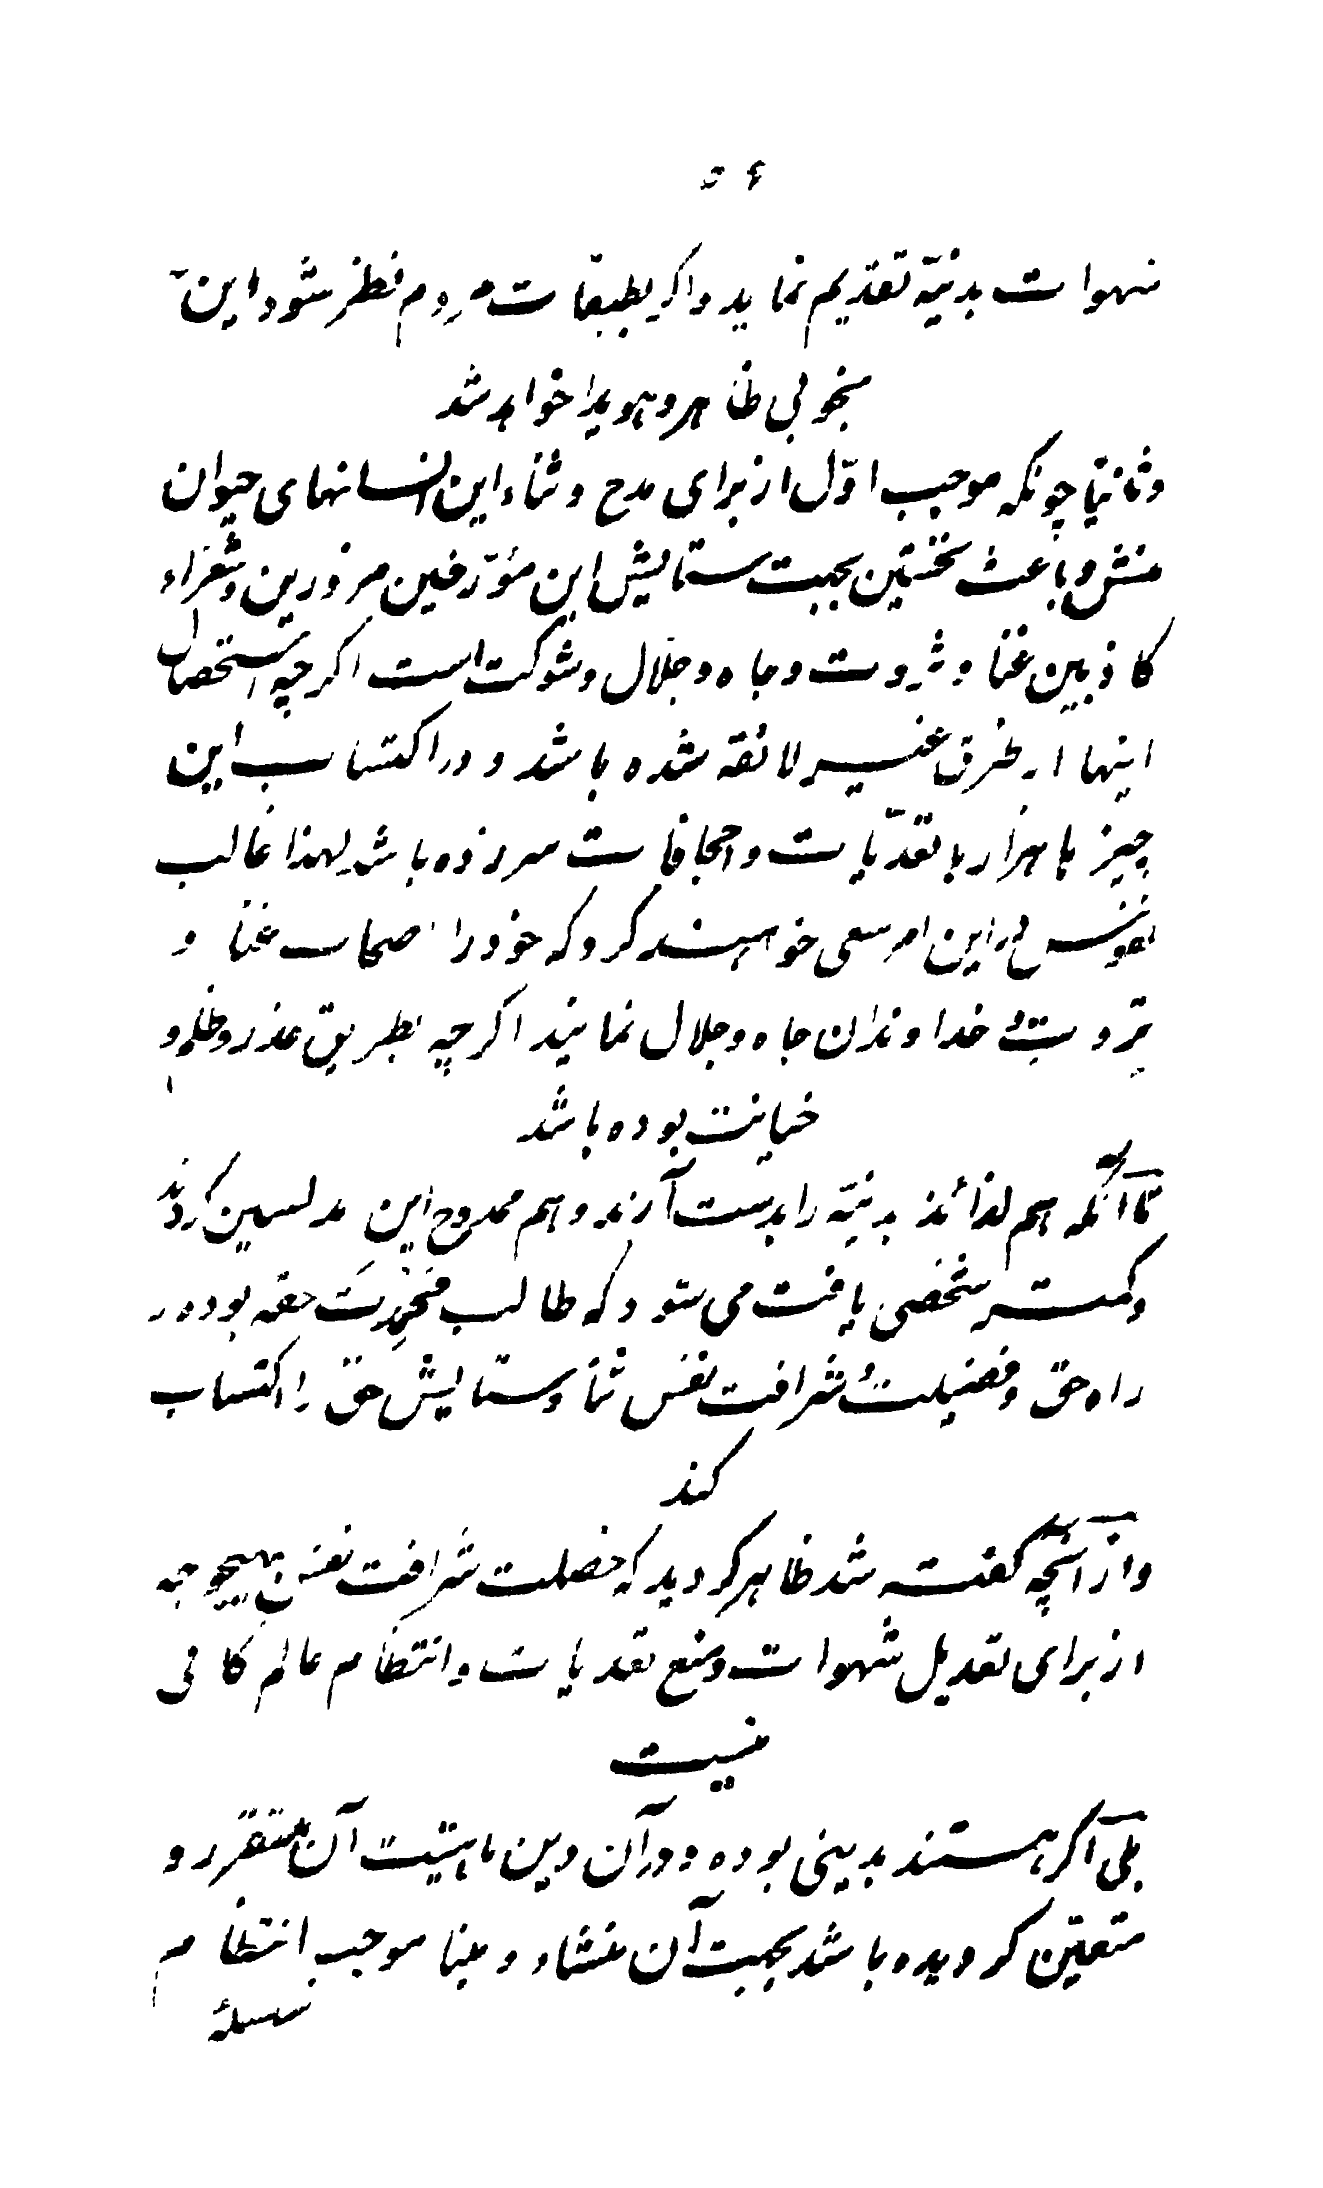 ۵۶
شهوات بدنیّه تقدیم نماید و اگر بطبقات مردم نظر شود این
بخوبی ظاهر و هویدا خواهد شد
و ثانیاً چونکه موجب اوّل از برای مدح و ثناء این انسانهای حیوان
منش و باعث نخستین بجهت ستایش این مؤرّخین مزورین و شعراء
کاذبین غنا و ثروت و جاه و جلال و شوکت است اگرچه استحصال
اینها از طرق غیر لائقه شده باشد و در اکتساب این
چیزها هزارها تعدّیات و اجحافات سر زده باشد لهذا غالب
نفوس در این امر سعی خواهند کرد که خود را اصحاب غنا و
ثروت و خداوندان جاه و جلال نمایند اگرچه بطریق غدر و ظلم و
خیانت بوده باشد
تا آنکه هم لذائذ بدنیّه را بدست آرند و هم ممدوح این مدلسین کردند
و کمتر شخصی یافت می شود که طالب محمدت حقه بوده از
راه حق و فضیلت و شرافت نفس ثنا و ستایش حق را اکتساب
کند
و از آنچه گفته شد ظاهر گردید که خصلت شرافت نفس بهیچوجه
از برای تعدیل شهوات و منع تعدیات و انتظام عالم کافی
نیست
بلی اگر مستند بدینی بوده و در آن دین ماهیّت آن متقرر و
متعیّن گردیده باشد بجهت آن منشاء و مبنا موجب انتظام
سلسلهٔ